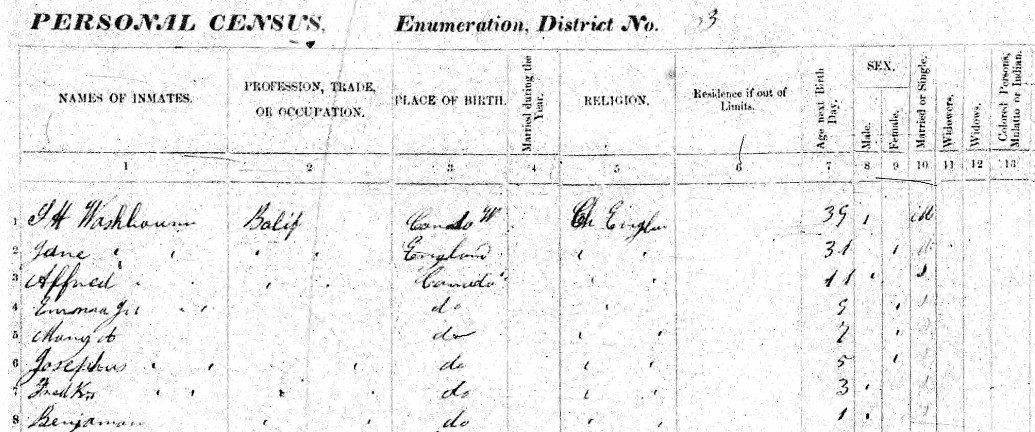 PERSONAL CENSUS, Enumeration, District No. 23
NAMES OF INMATES. PROFESSION, TRADE, OR OCCUPATION. PLACE OF BIRTH. Married during the Year. RELIGION. Residence if out of Limits. Age next Birth Day. SEX. Male. Female, Married or Single. Widowers, Widows, Colored Persons, Mulatto or Indian.
1 2 3 4 5 6 7 8 9 10 11 12 13
1 Washbourn Canada W Ch Englan 39 M
2 Jane " " " " England " " 31
3 Canada " " 11
4 " " do 9
5 Mary do " " 7
6 Josephus " " do " " 5
7 " " do " " 3
8 Benjaman " " do " " 1